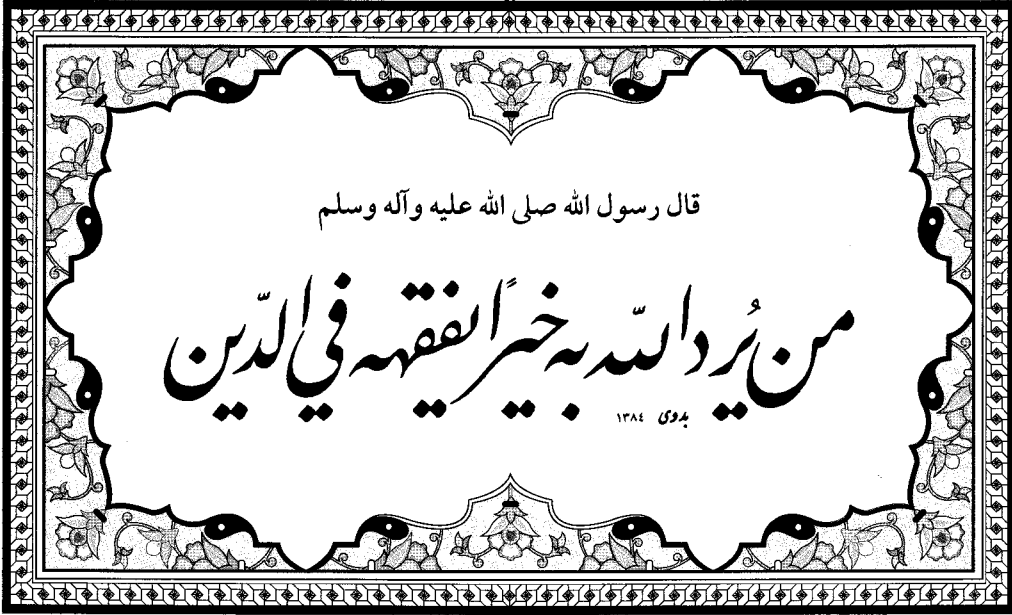 قال رسول الله صلى الله عليه وآله وسلم
من يُرد الله به خيرًا يفقهه في الدّين
بدوي ١٣٨٤